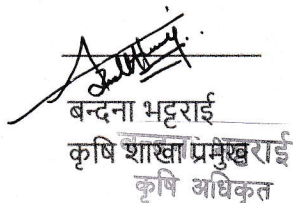 बन्दना भट्टराई
कृषि शाखा प्रमुख
बन्दना भट्टराई
कृषि अधिकृत